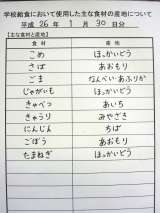 学校給食において使用した主な食材の産地について
平成 26 年 1 月 30 日分
【主な食材と産地】
食材 産地
こめ ほっかいどう
さば あおもり
ごま なんべい・あふりか
じゃがいも ほっかいどう
きゃべつ あいち
きゅうり みやざき
にんじん ちば
ごぼう あおもり
たまねぎ ほっかいどう